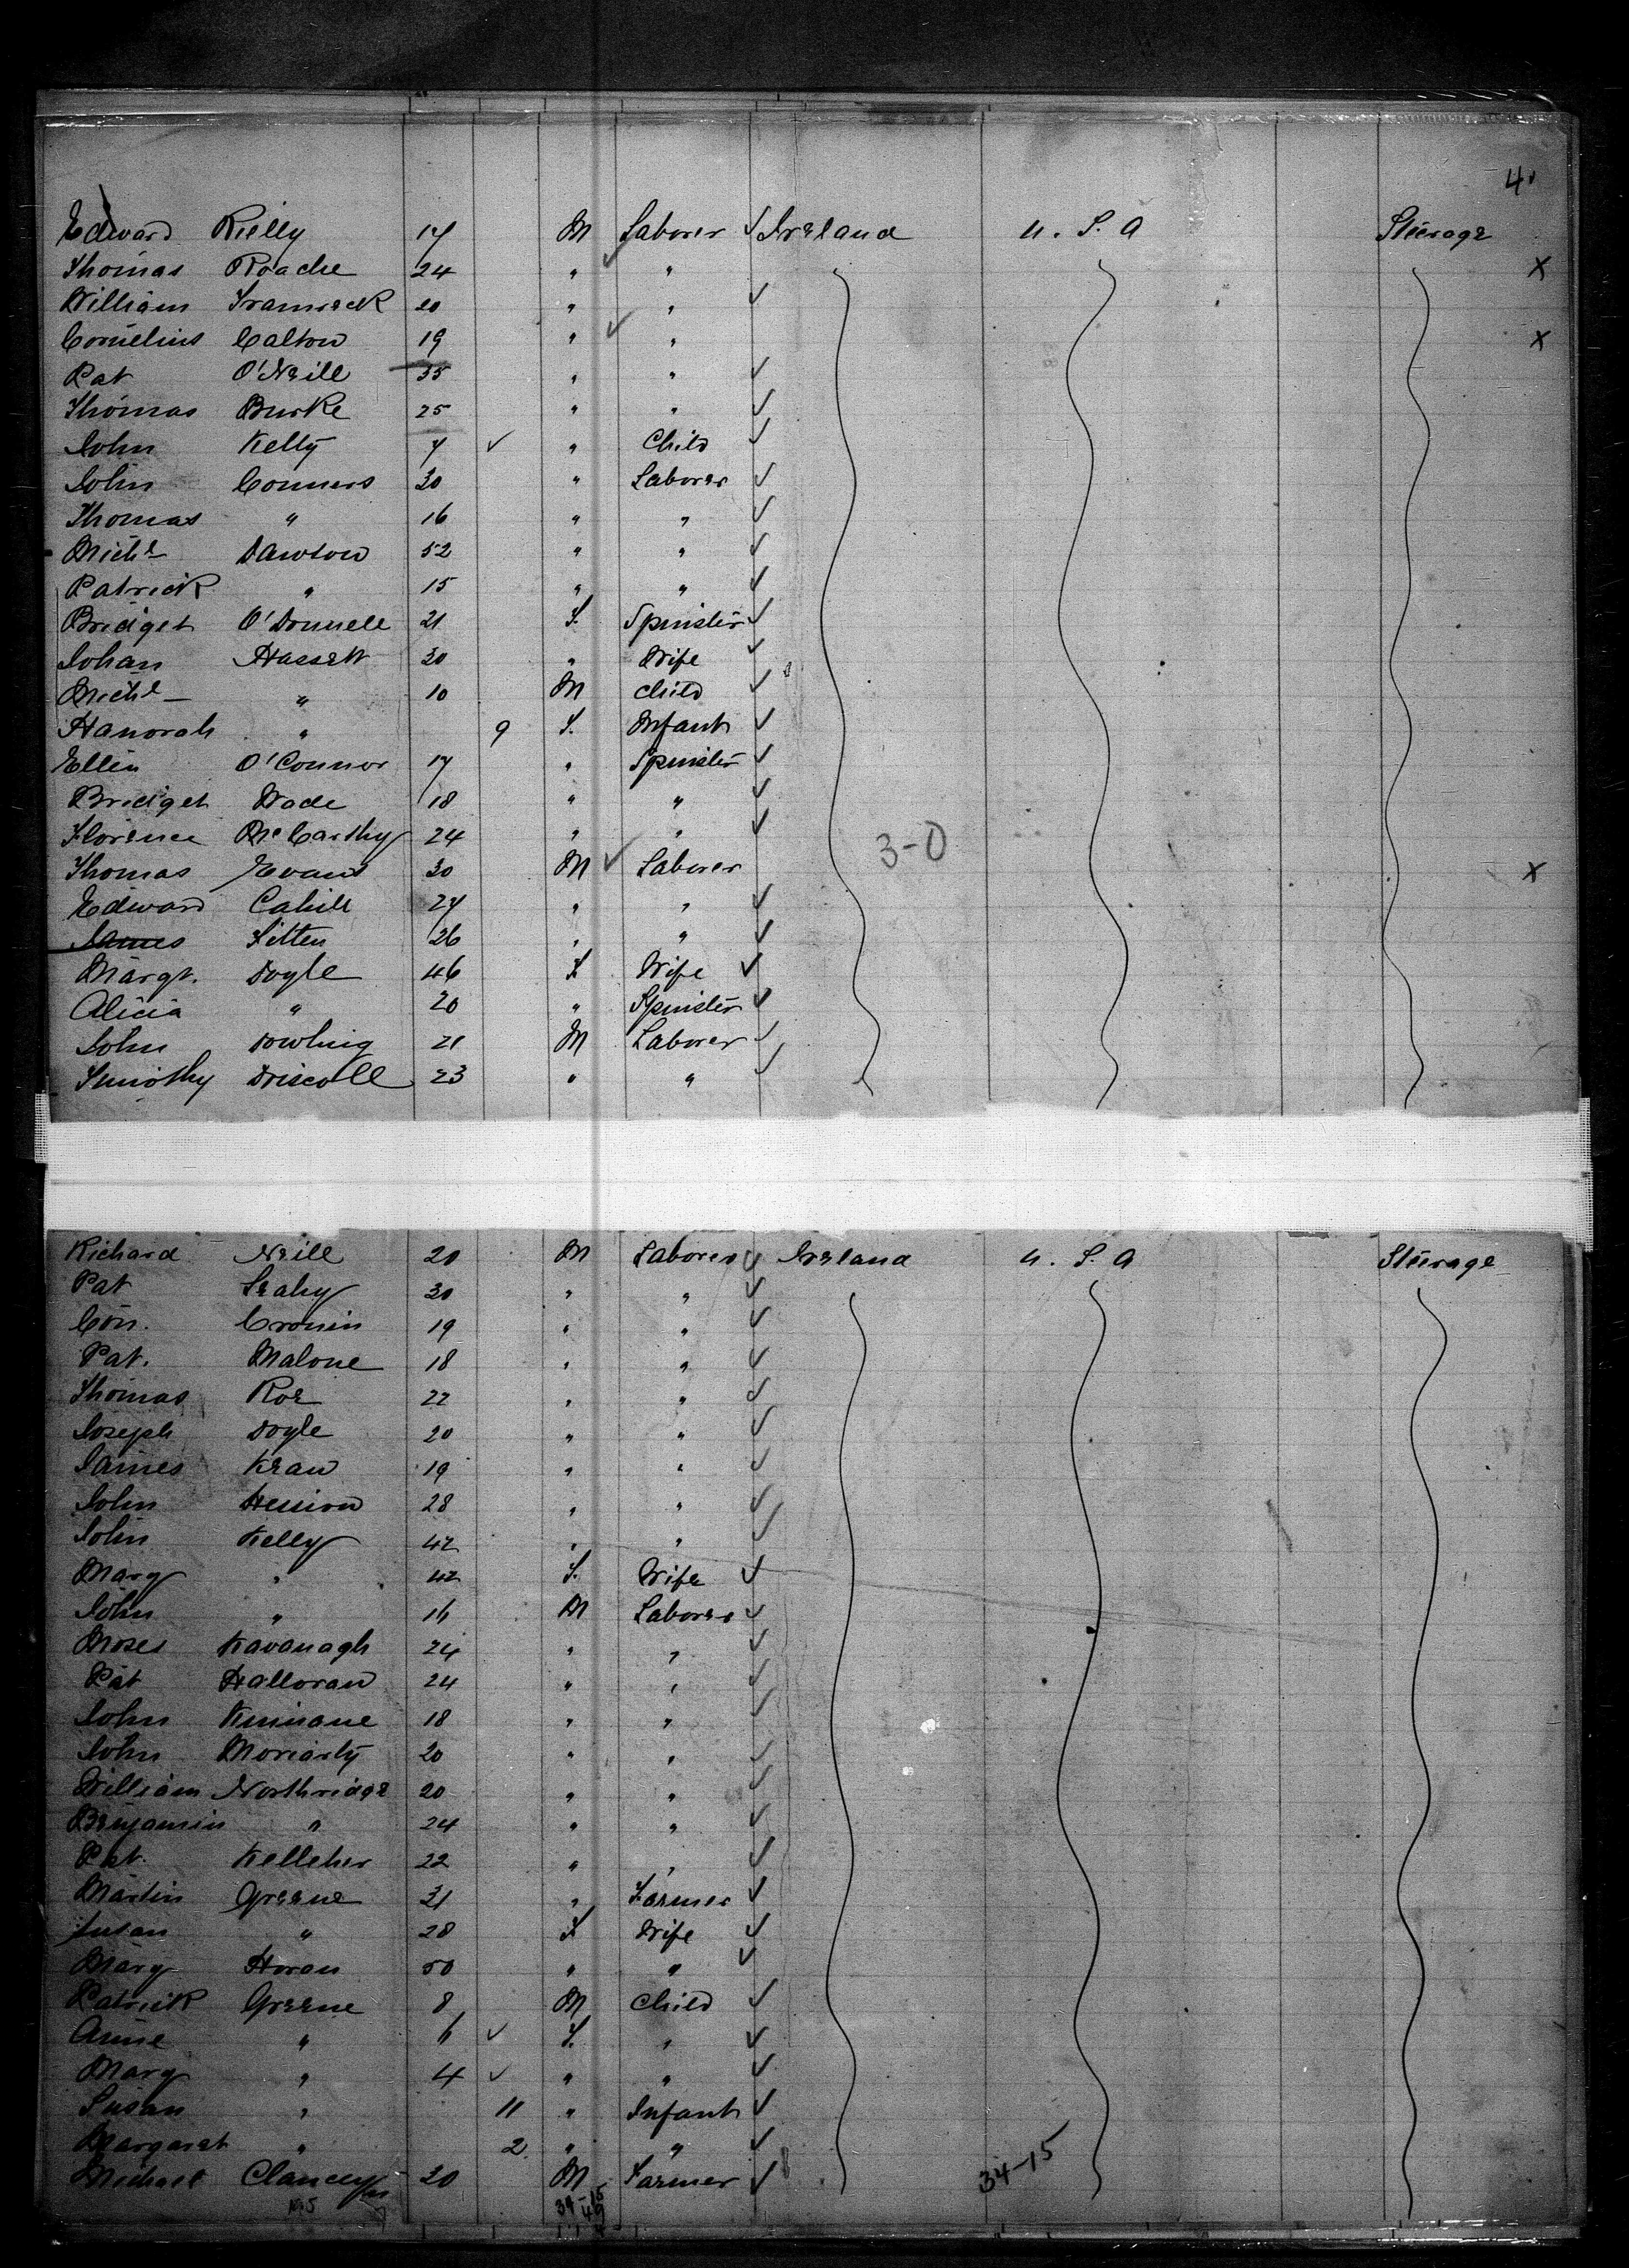 4
Edward Rielly 17 M Laborer ✓ Ireland U. S. A Steerage
Thomas Roache 24 " ✓ " X
William 20 " " ✓
Cornelius Calton 19 " ✓ " X
Pat O'Neill 35 " " ✓
Thomas Burke 25 " " ✓
John Kelly 7 ✓ " Child ✓
John Conners 30 " Laborer ✓
Thomas " 16 " " ✓
Michl Dawson 52 " " ✓
Patrick " 15 " " ✓
Bridget O'Donnell 21 F. Spinster ✓
Johan Hassett 30 " Wife ✓
Michl " 10 M Child ✓
Hanorah " 9 F. Infant ✓
Ellen O'Connor 17 " Spinster ✓
Bridget Wade 18 " " ✓
Florence McCarthy 24 " " ✓
3-0
Thomas Evans 30 M ✓ Laborer X
Edward Cahill 24 " " ✓
James Fitten 26 " " ✓
Margt. Doyle 46 F Wife ✓
Alicia " 20 " Spinster ✓
John Dowling 21 M Laborer ✓
Timothy Driscoll 23 " " ✓
Richard Neill 20 M Laborer ✓ Ireland U. S. A Steerage
Pat Leahy 30 " " ✓
Con. Cronin 19 " " ✓
Pat. Malone 18 " " ✓
Thomas Roe 22 " " ✓
Joseph Doyle 20 " " ✓
James Kean 19 " " ✓
John Hession 28 " " ✓
John Kelly 42 " " ✓
Mary " 42 F. Wife ✓
John " 16 M Laborer ✓
Moses Kavanagh 24 " " ✓
Pat Halloran 24 " " ✓
John Kuinane 18 " " ✓
John Moriarty 20 " " ✓
William Northridge 20 " " ✓
Benjamin " 24 " " ✓
Pat. Kelleher 22 " " ✓
Martin Greene 31 " Farmer ✓
Susan " 28 F Wife ✓
Mary Horan 50 " " ✓
Patrick Greene 8 M Child ✓
Anne " 6 ✓ F. " ✓
Mary " 4 ✓ " " ✓
Susan " 11 " Infant ✓
Margaret " 2 " " ✓
Michael Clancey 20 M Farmer ✓
34-15
34-15